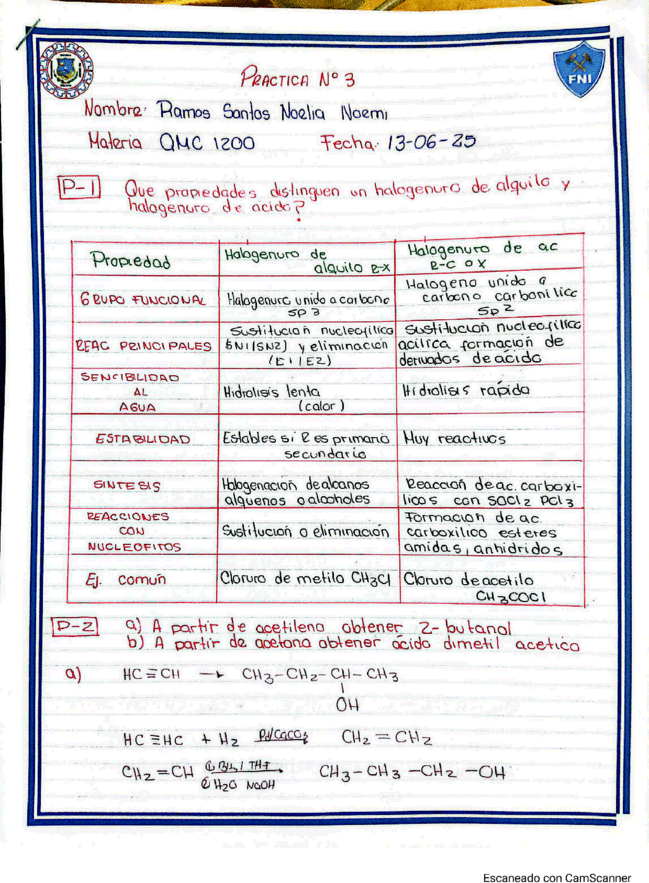 PRACTICA Nº 3
FNI
Nombre: Ramos Santos Noelia Noemi
Materia QMC 1200 Fecha: 13-06-25
P-1 Que propiedades distinguen un halogenuro de alquilo y
halogenuro de acido?
Propiedad
Halogenuro de
alquilo R-X
Halogenuro de ac
R-C O X
GRUPO FUNCIONAL
Halogenuro unido a carbono
SP 3
Halogeno unido a
carbono carbonilico
SP 2
REAC PRINCIPALES
Sustitucion nucleofilica
SN1(SN2) y eliminacion
(E1/E2)
Sustitucion nucleofilica
acilica formacion de
derivados de ácido
SENCIBILIDAD
AL
AGUA
Hidrolisis lenta
(calor)
Hidrolisis rapida
ESTABILIDAD
Estables si R es primario
secundario
Muy reactivos
SINTESIS
Halogenacion de alcanos
alquenos o alcoholes
Reaccion de ac. carboxi-
licos con SOCl2 PCl3
REACCIONES
CON
NUCLEOFITOS
Sustitucion o eliminación
Formacion de ac.
carboxilico esteres
amidas, anhidridos
Ej. comun
Cloruro de metilo CH3Cl
Cloruro de acetilo
CH3COCl
P-2 a) A partir de acetileno obtener 2-butanol
b) A partir de acetona obtener ácido dimetil acetico
a) HC≡CH → CH3-CH2-CH-CH3
OH
HC≡HC + H2 Pd/CaCO3 CH2=CH2
CH2=CH ① BH3/THF CH3-CH3-CH2-OH
② H2O NaOH
Escaneado con CamScanner